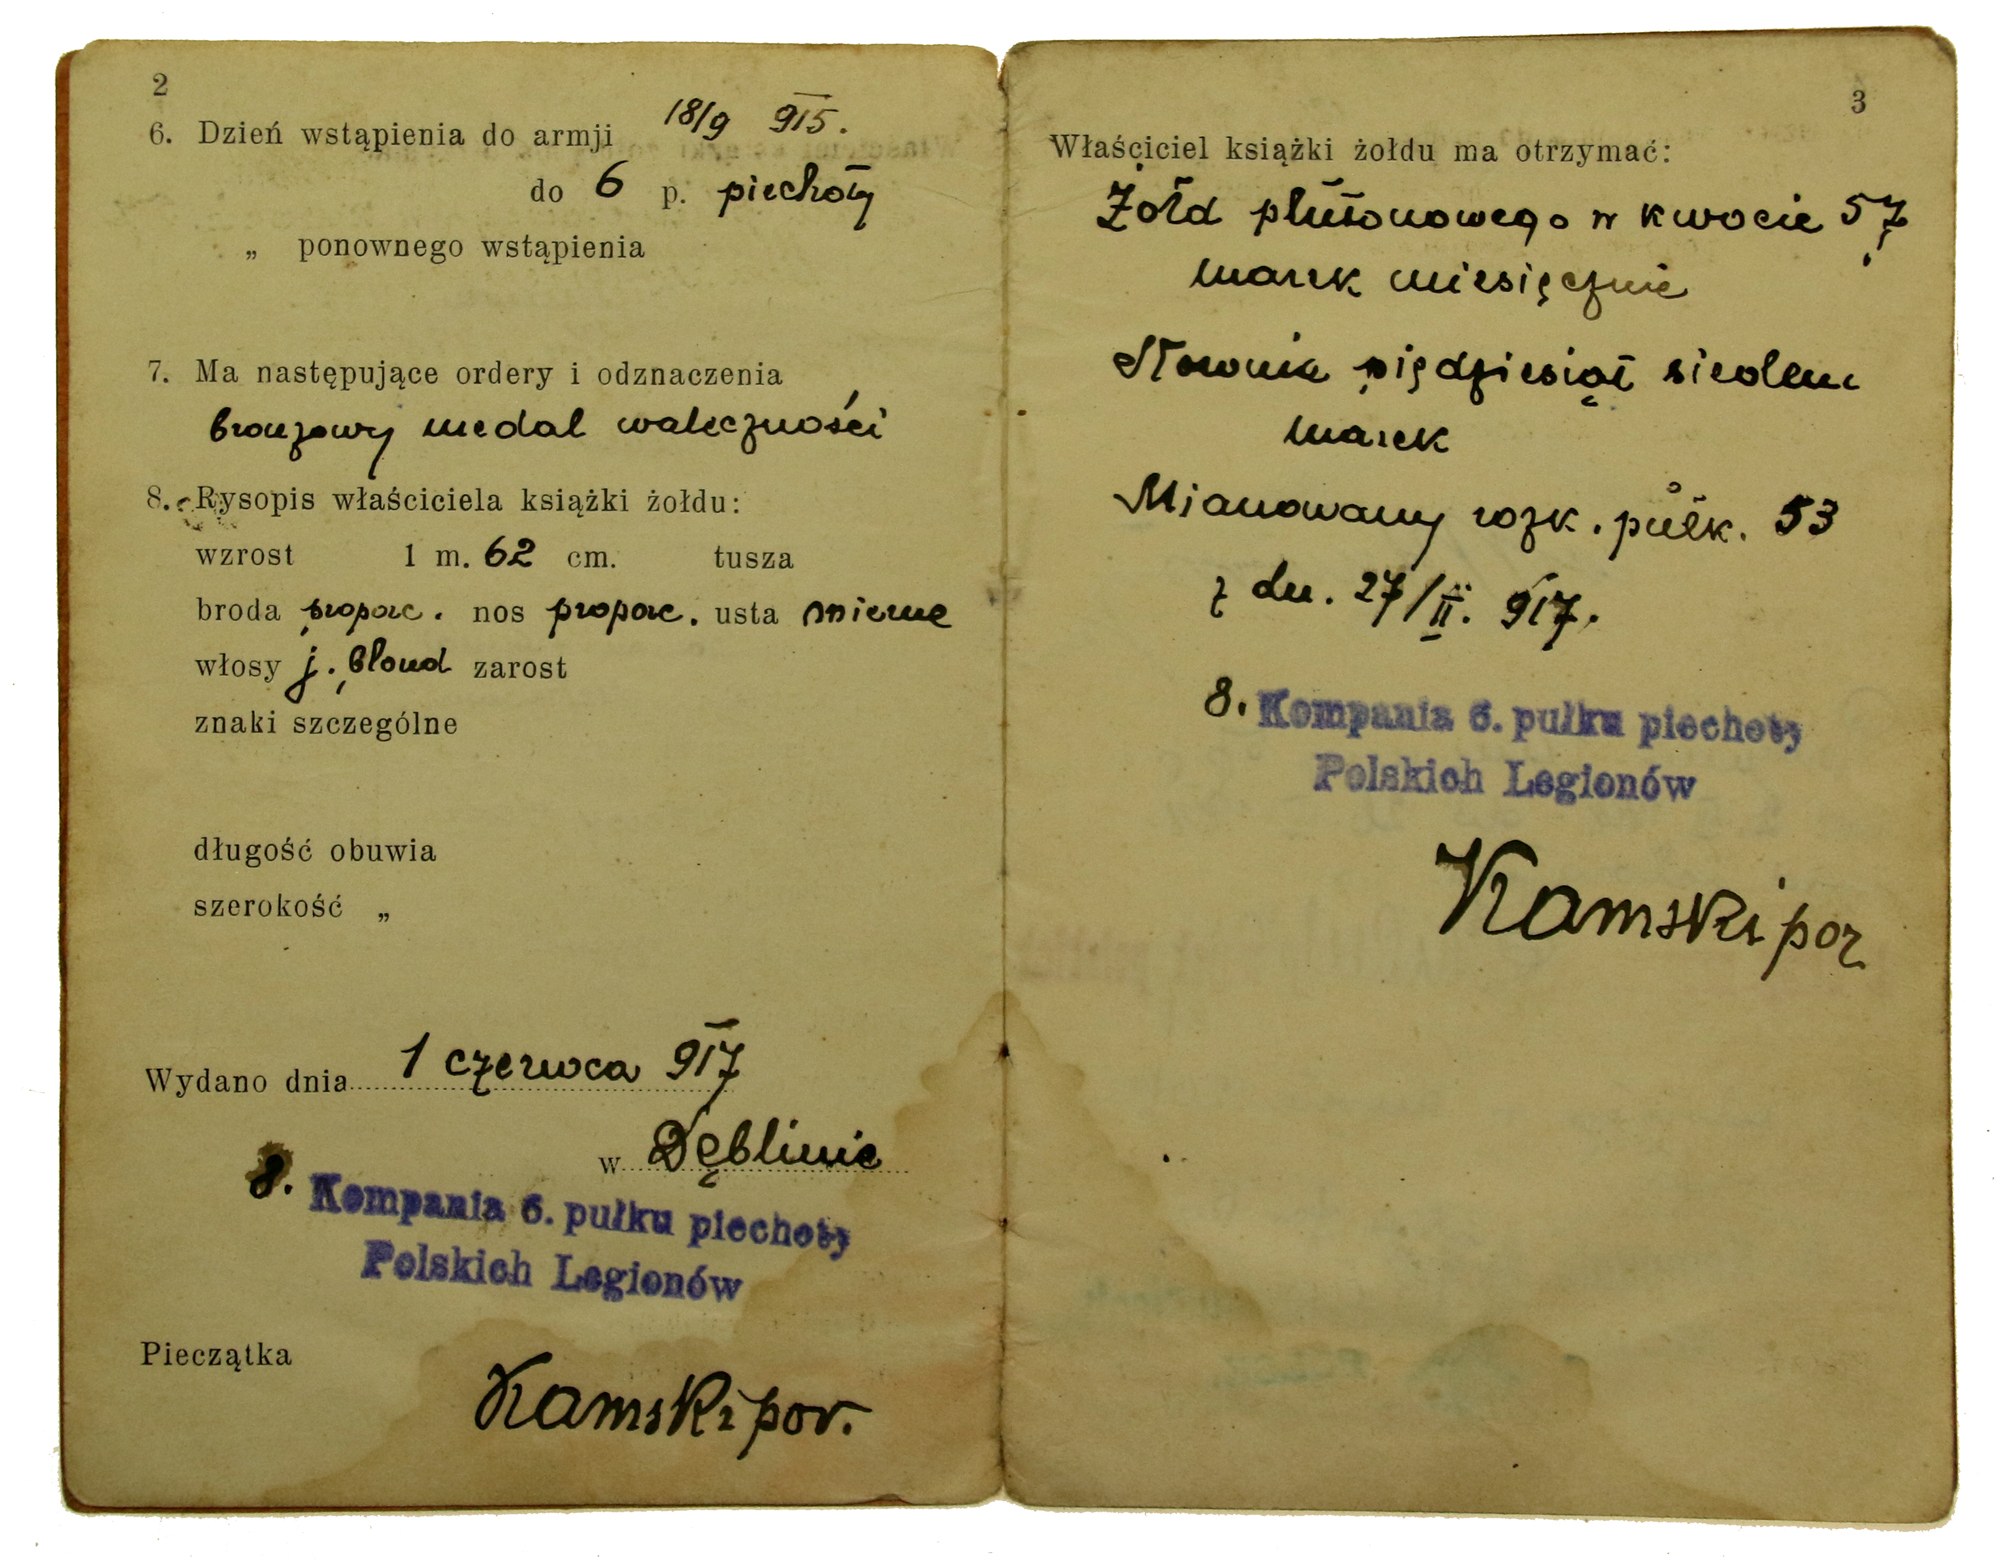 2
6. Dzień wstąpienia do armji 18/9 915.
do 6 p. piechoty
„ ponownego wstąpienia
7. Ma następujące ordery i odznaczenia
bronzowy medal waleczności
8. Rysopis właściciela książki żołdu:
wzrost 1 m. 62 cm. tusza
broda proporc. nos proporc. usta mierne
włosy j. blond zarost
znaki szczególne
długość obuwia
szerokość „
Wydano dnia 1 czerwca 917
w Dęblinie
8. Kompania 6. pułku piechoty
Polskich Legionów
Pieczątka
Kamski por.
3
Właściciel książki żołdu ma otrzymać:
Żołd plutonowego w kwocie 57
marek miesięcznie
Słownie piędziesiąt siedem
marek
Mianowany rozk. pułk. 53
z dn. 27/II. 917.
8. Kompania 6. pułku piechoty
Polskich Legionów
Kamski por